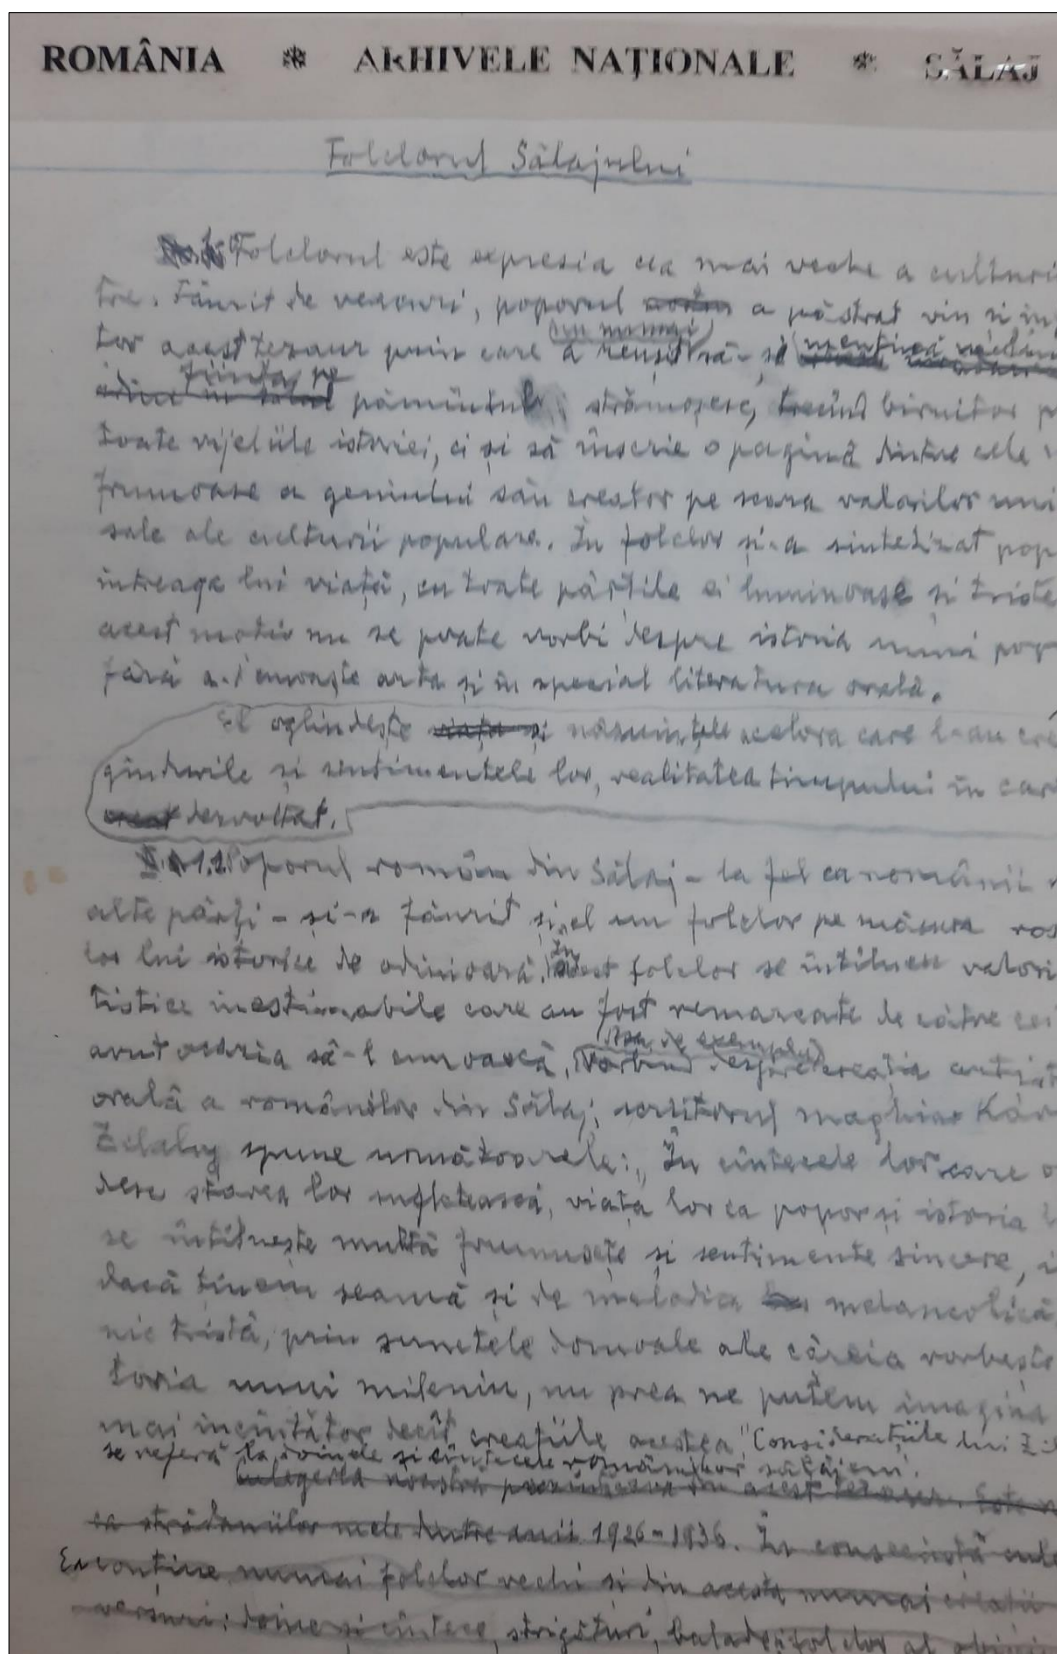 ROMÂNIA * ARHIVELE NAȚIONALE * SĂLAJ
Folclorul Sălajului
Folclorul este expresia cea mai veche a culturi
tre. Făurit de veacuri, poporul a păstrat viu și în
nu numai
tor acest tezaur prin care a reușit să-și mențină
ființa pe
pămîntul strămoșesc, trecînd biruitor p
toate vijeliile istoriei, ci și să înscrie o pagină dintre cele
frumoase a geniului său creator pe scara valorilor uni
sale ale culturii populare. În folclor și-a sintetizat pop
întreaga lui viață, cu toate părțile ei luminoase și triste
acest motiv nu se poate vorbi despre istoria unui pop
fără a-i cunoaște arta și în special literatura orală.
El oglindește viața și năzuințele acelora care l-au cre
gîndurile și sentimentele lor, realitatea timpului în car
creat dezvoltat.
1.1. Poporul român din Sălaj – la fel ca românii
alte părți – și-a făurit și el un folclor pe măsura ros
În
lor lui istorice de odinioară. acest folclor se întîlnesc valori
tistice inestimabile care au fost remarcate de către cei
Așa, de exemplu
avut ocazia să-l cunoască. Vorbind despre creația artist
orală a românilor din Sălaj, scriitorul maghiar Kár
spune următoarele: „În cîntecele lor care o
desc starea lor sufletească, viața lor ca popor și istoria
se întîlnește multă frumusețe și sentimente sincere,
dacă ținem seamă și de melodia melancolică,
nic tristă, prin sunetele domoale ale căreia vorbește
toria unui mileniu, nu prea ne putem imagina
mai încîntător decît creațiile acestea" Considerațiile lui
se referă la doinele și cîntecele românilor sălăjeni.
culegerea noastră din acest tezaur. Este
ca strădaniilor mele dintre anii 1926-1936. În consecință cule
Ea conține numai folclor vechi și din acesta numai creații
versuri: doine și cîntece, strigături, balade, folclor al obicei